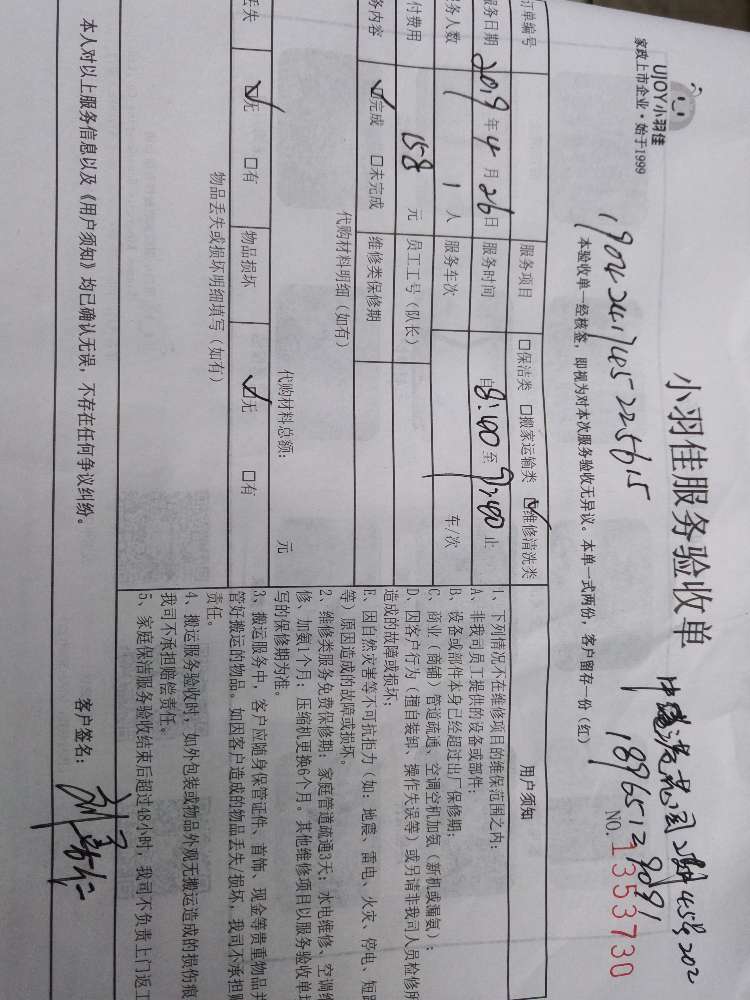 UJOY小羽佳
家政上市企业·始于1999
小羽佳服务验收单
18965129091
NO:1353730
本验收单一经核签，即视为对本次服务验收无异议。本单一式两份，客户留存一份（红）
订单编号
服务项目 口保洁类 口搬家运输类 ☑维修清洗类
服务日期 2019年4月26日 服务时间 自8:40至9:40止
务人数 1 1人 服务车次 车/次
付费用 158元 员工工号（队长）
务内容 ☑完成 口未完成 维修类保修期
代购材料明细（如有）
代购材料总额： 元
丢失 ☑无 口有 物品损坏 ☑无 口有
物品丢失或损坏明细填写（如有）
用户须知
1、下列情况不在维修项目的维保范围之内：
A、非我司员工提供的设备或部件；
B、设备或部件本身已经超过出厂保修期；
C、商业（商铺）管道疏通、空调空机加氨（新机或漏氨）；
D、因客户行为（擅自装卸、操作失误等）或另请非我司人员检修所
造成的故障或损坏；
E、因自然灾害等不可抗拒力（如：地震、雷电、火灾、停电、短路
等）原因造成的故障或损坏。
2、维修类服务免费保修期：家庭管道疏通3天；水电维修、空调维
修、加氨1个月；压缩机更换6个月。其他维修项目以服务验收单填
写的保修期为准。
3、搬运服务中，客户应随身保管证件、首饰、现金等贵重物品并
管好搬运的物品。如因客户造成的物品丢失/损坏，我司不承担赔
责任。
4、搬运服务验收时，如外包装或物品外观无搬运造成的损伤痕
我司不承担赔偿责任。
5、家庭保洁服务验收结束后超过48小时，我司不负责上门返工
本人对以上服务信息以及《用户须知》均已确认无误，不存在任何争议纠纷。
客户签名：